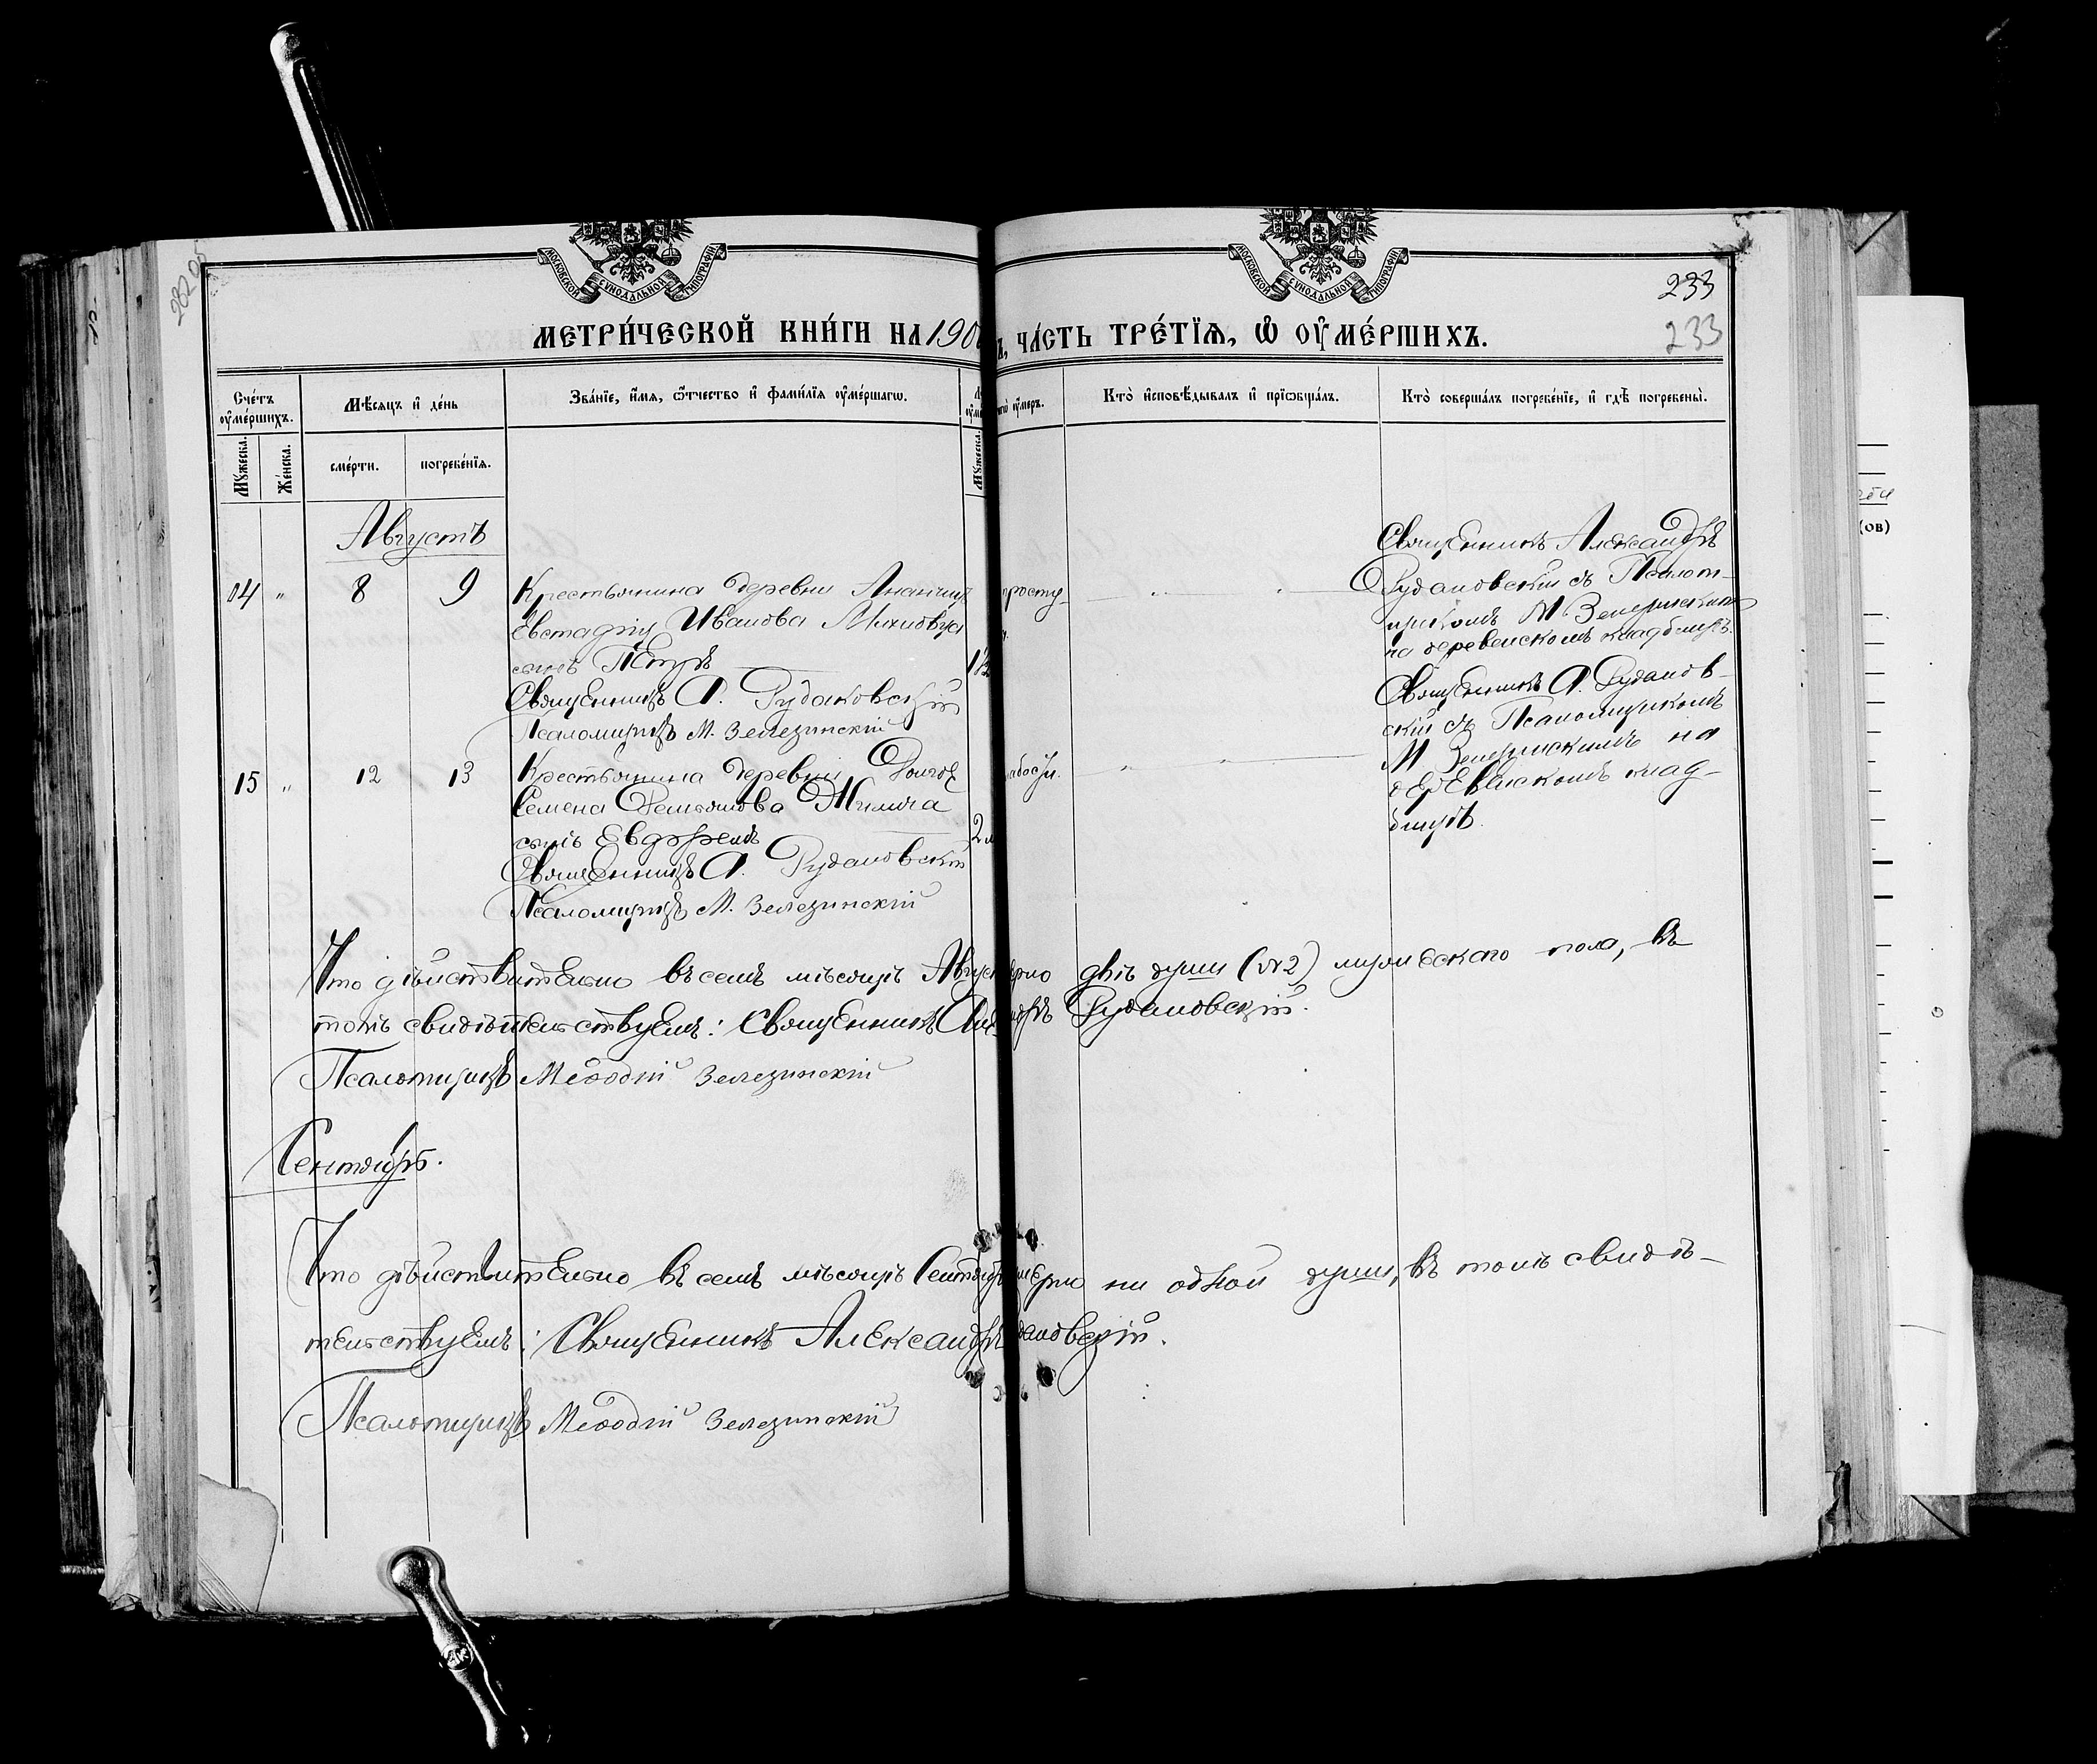 МОСКОВСКОЙ СѴНОДАЛЬНОЙ ТИПОГРАФІИ
МОСКОВСКОЙ СѴНОДАЛЬНОЙ ТИПОГРАФІИ
233
233
МЕТРИ́ЧЕСКОЙ КНИ́ГИ НА 190
ЧА́СТЬ ТРЕ́ТІѦ, Ѡ ОУМЕ́РШИХЪ.
Сче́тъ оуме́ршихъ.
Мѣ́сяцъ и де́нь
Зва́ніе, и́мя, ѻ́тчество и фами́лія оуме́ршагѡ.
оуме́ръ.
Кто̀ исповѣ́дывалъ и пріѻбща́лъ.
Кто̀ соверша́лъ погребе́ніе, и гдѣ̀ погребены̀.
Мꙋ́жеска.
Же́нска.
сме́рти.
погребе́нія.
Мꙋ́жеска.
Августъ
14 " 8 9 Крестьянина деревни
Евстафія Иванова
сынъ Петръ
Священникъ А. Рудаковскій
Псаломщикъ М. Зелезинскій
просту-
Священникъ Александръ
Рудаковскій съ Псалом-
щикомъ М Зелезинскимъ
на деревенскомъ кладбищѣ.
15 " 12 13 Крестьянина деревни
Семена
сынъ
Священникъ А. Рудаковскій
Псаломщикъ М. Зелезинскій
Священникъ А. Рудаков-
скій съ Псаломщикомъ
М Зелезинскимъ на
деревенскомъ клад-
бищѣ.
Что дѣйствительно въ семъ мѣсяцѣ двѣ души (№2) мужескаго пола, въ
томъ свидѣтельствуемъ: Священникъ Рудаковскій.
Псаломщикъ Меѳодій Зелезинскій
Сентябрь.
Что дѣйствительно въ семъ мѣсяцѣ Сентябрѣ ни одной души, въ томъ свидѣ-
тельствуемъ: Священникъ Александръ
Псаломщикъ Меѳодій Зелезинскій
(ов)